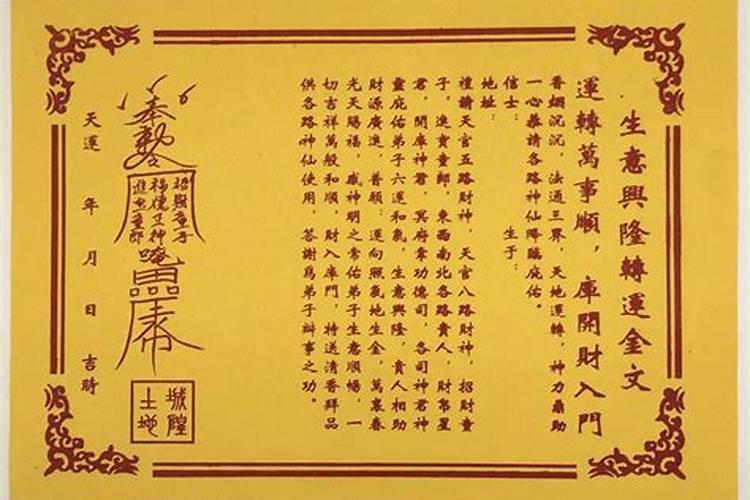 生意興隆轉運金文
運轉萬事順，庫開財入門
香烟沉沉，法通三界，天地運轉，神力鼎助
一心恭請各路神仙降臨庇佑。
信士： 生于：
地址：
禮請天官五路財神，天官八路財神，招財童
子，進寶童郎，東西南北各路貴人，財帛星
君，開庫神君，冥府掌功德司，各司神君神
靈庇佑弟子六運和氣，生意興隆，貴人相助
財源廣進，普願：運向照氣地生金，萬裏春
光天賜福，感神明之常佑弟子生意順暢，一
切吉祥萬般和順，財入庫門，特送清香拜品
供各路神仙使用，答謝爲弟子辦事之功。
奉勅令
招財童子
福德正神
進寶童郎
城隍
土地
天運 年 月 日 吉時